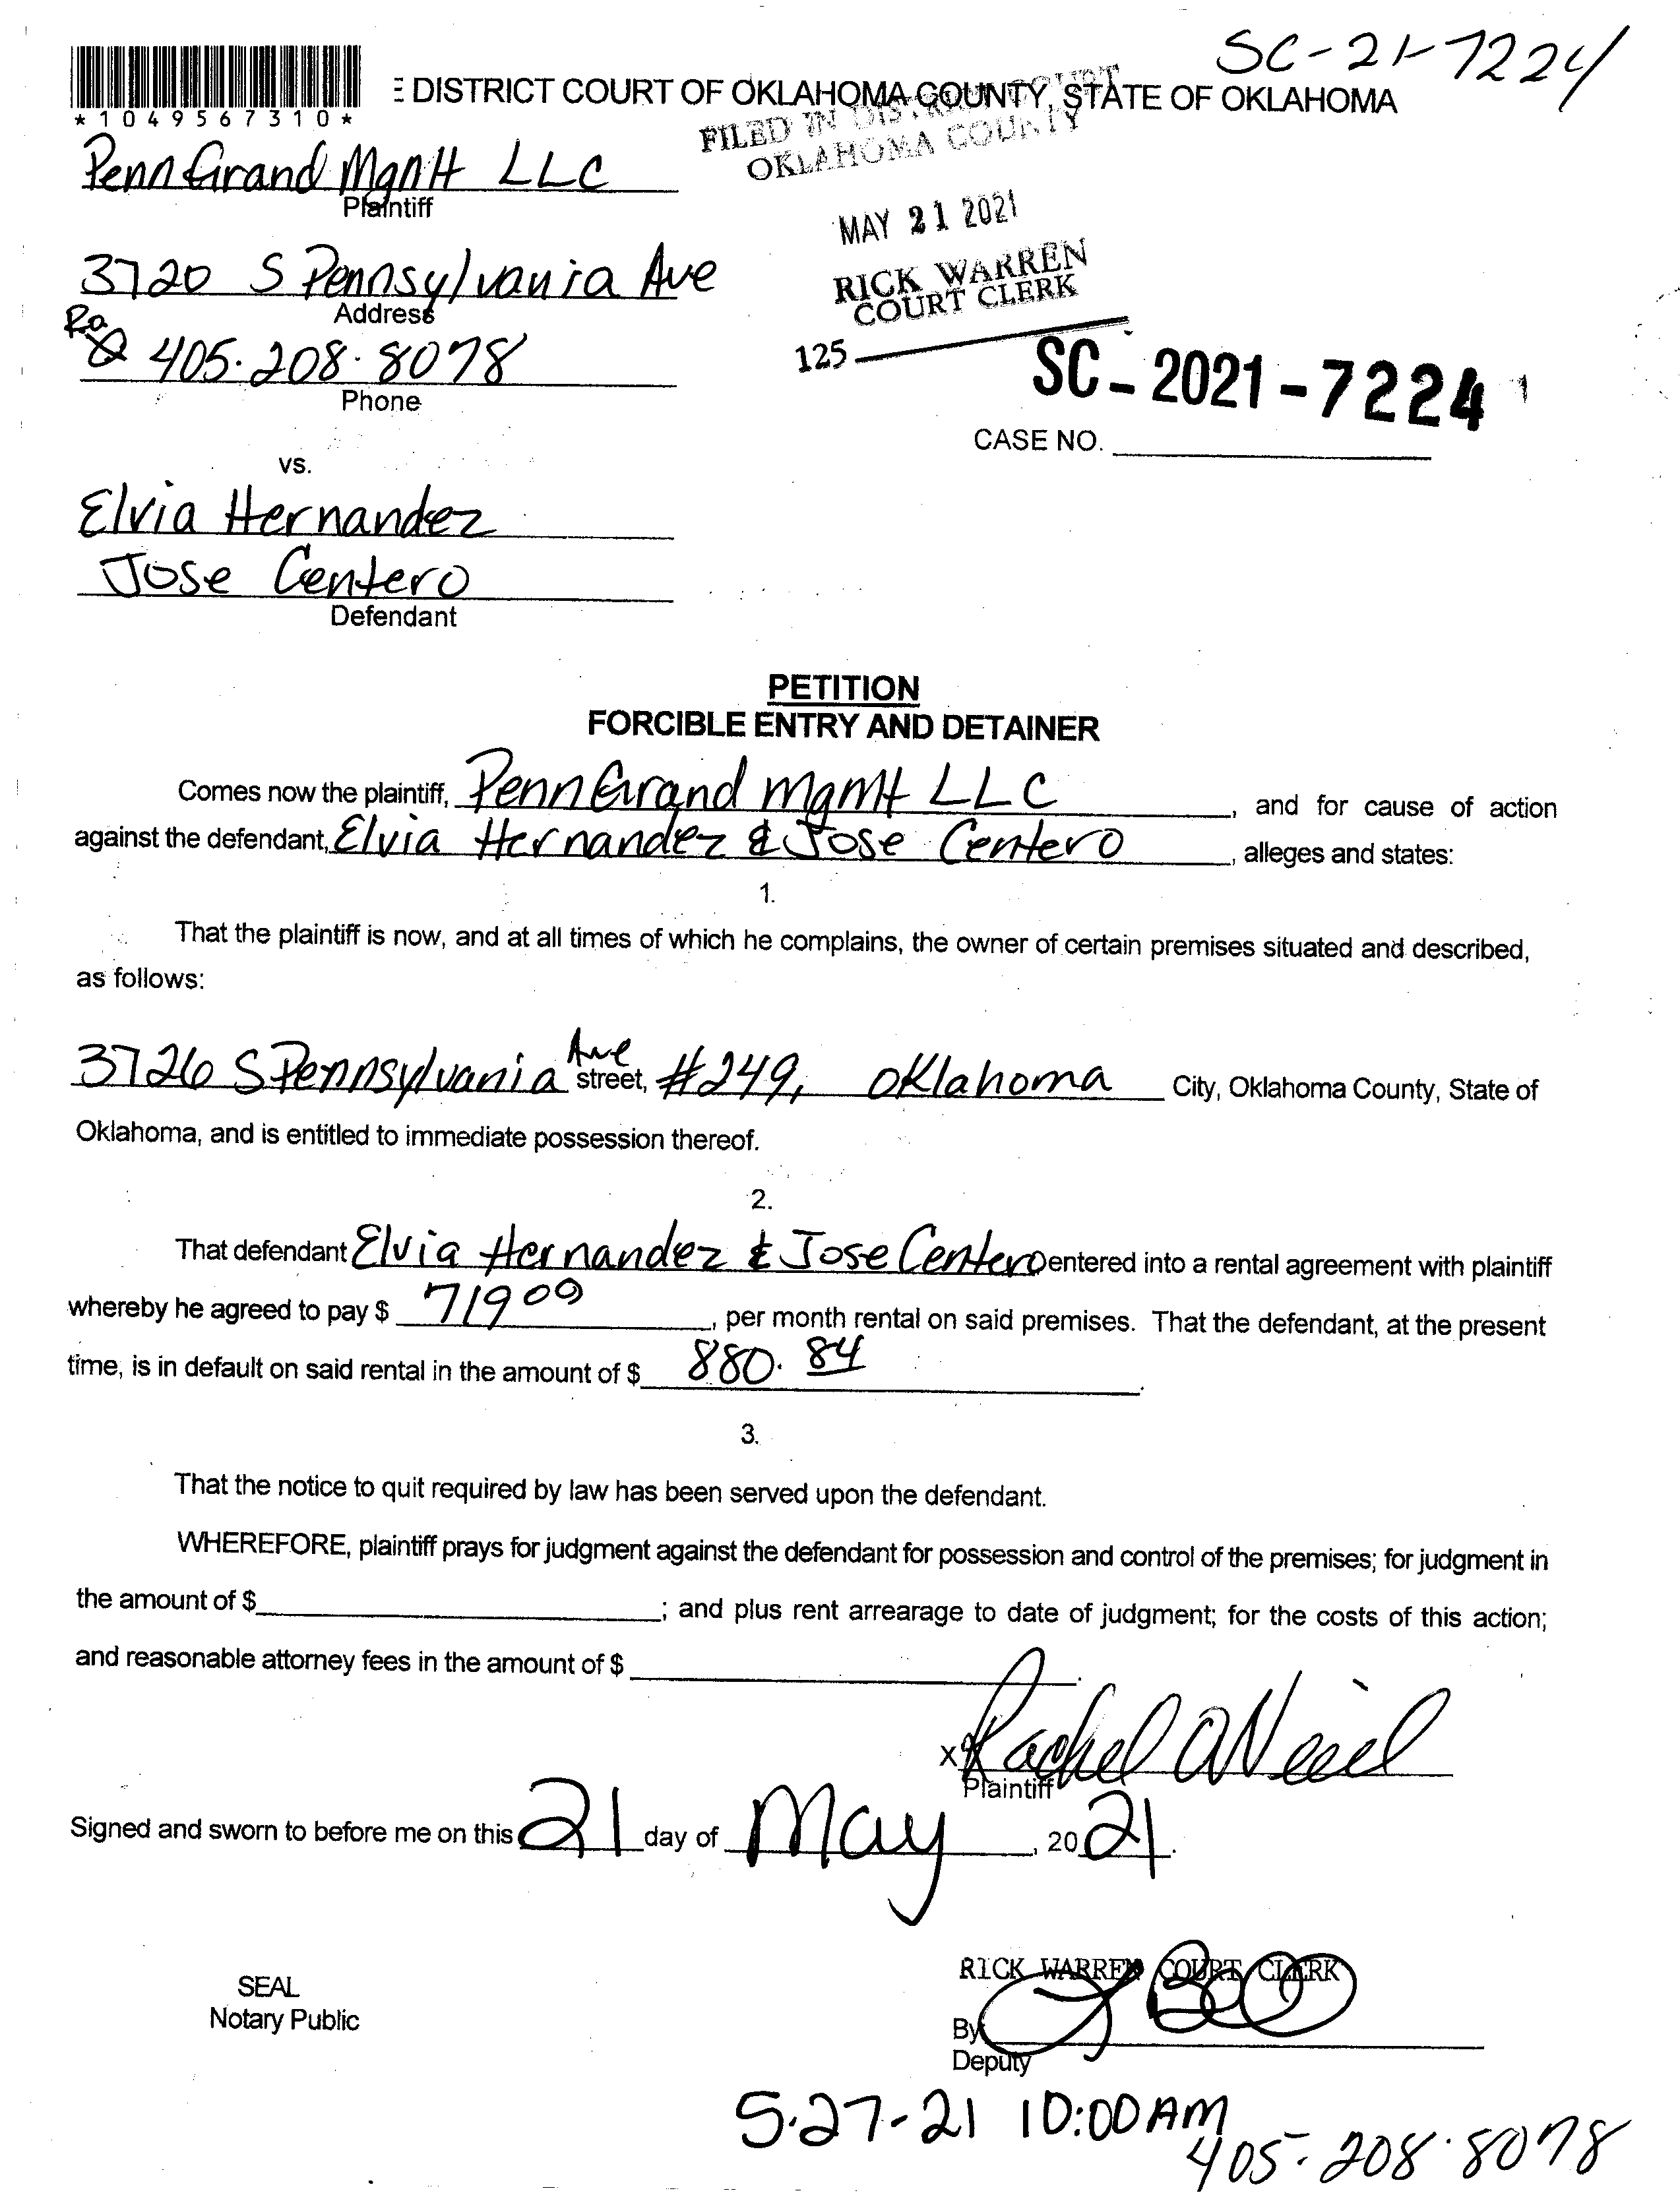 SC-21-7224
*1049567310*
E DISTRICT COURT OF OKLAHOMA COUNTY, STATE OF OKLAHOMA
FILED IN DISTRICT COURT
OKLAHOMA COUNTY
Penn Grand Mgmt LLC
Plaintiff
MAY 21 2021
3720 S Pennsylvania Ave
Address
RICK WARREN
COURT CLERK
405.208.8078
Phone
125
SC-2021-7224
CASE NO.
vs.
Elvia Hernandez
Jose Centero
Defendant
PETITION
FORCIBLE ENTRY AND DETAINER
Comes now the plaintiff, Penn Grand Mgmt LLC, and for cause of action
against the defendant, Elvia Hernandez & Jose Centero, alleges and states:
1.
That the plaintiff is now, and at all times of which he complains, the owner of certain premises situated and described,
as follows:
3726 S Pennsylvania Ave street, #249, Oklahoma City, Oklahoma County, State of
Oklahoma, and is entitled to immediate possession thereof.
2.
That defendant Elvia Hernandez & Jose Centero entered into a rental agreement with plaintiff
whereby he agreed to pay $ 719 00, per month rental on said premises. That the defendant, at the present
time, is in default on said rental in the amount of $ 880.84.
3.
That the notice to quit required by law has been served upon the defendant.
WHEREFORE, plaintiff prays for judgment against the defendant for possession and control of the premises; for judgment in
the amount of $; and plus rent arrearage to date of judgment; for the costs of this action;
and reasonable attorney fees in the amount of $.
x Rachel ONeil
Plaintiff
Signed and sworn to before me on this 21 day of May, 2021.
RICK WARREN COURT CLERK
SEAL
Notary Public
By
Deputy
5-27-21 10:00AM
405-208-8078